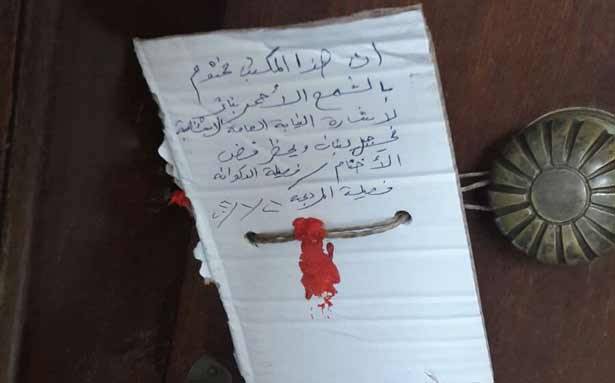 ان هذا المكتب مختوم
بالشمع الأحمر بناءً
لإشارة النيابة العامة الإستئنافية
في جبل لبنان ويحظر فض
الأختام / فصيلة الدكوانة
فصيلة